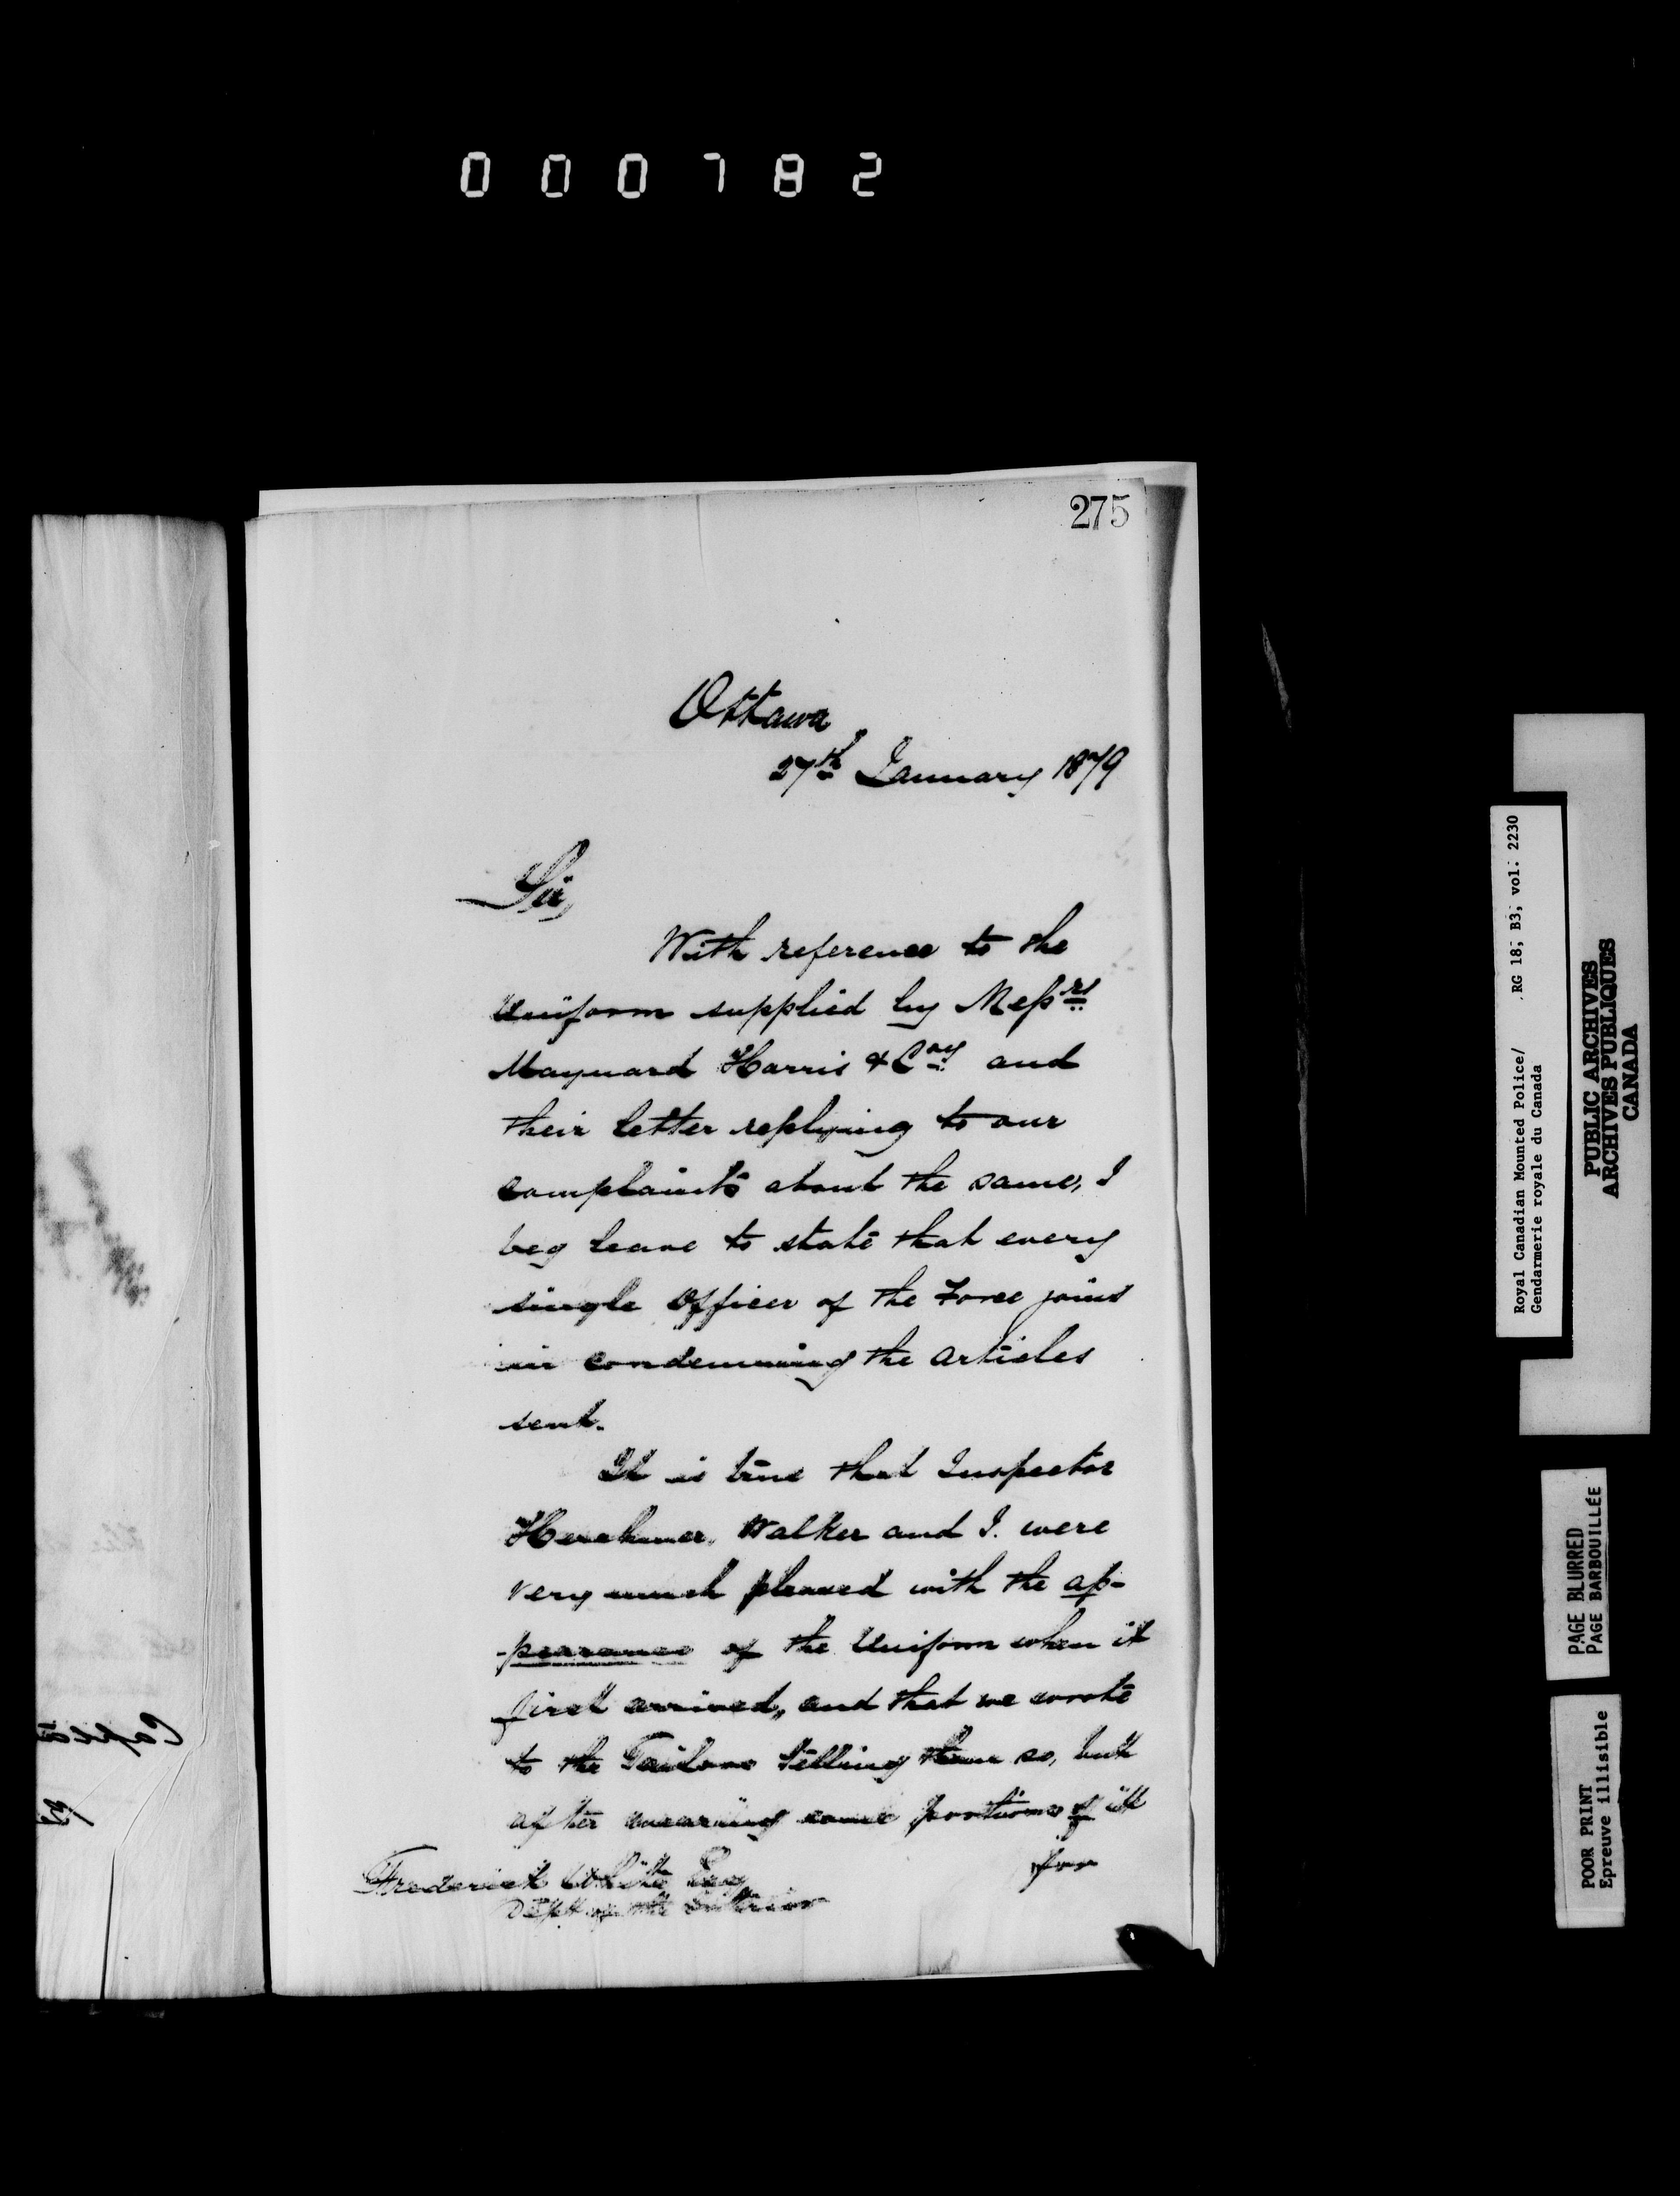 000782
275
Ottawa
27th January 1879
Sir,
With reference to the
Uniform supplied by Messrs
Maynard Harris & Coy and
their letter replying to our
complaints about the same, I
beg leave to state that every
single Officer of the Force joins
in condemning the articles
sent.
It is true that Inspector
Herchmer, Walker and I. were
very much pleased with the ap-
-pearance of the Uniform when it
first arrived, and that we wrote
to the Tailors telling them so, but
after wearing some portions of it
for
Frederick White Esq
Dept of the Interior
Royal Canadian Mounted Police/ RG 18, B3, vol. 2230
Gendarmerie royale du Canada
PUBLIC ARCHIVES
ARCHIVES PUBLIQUES
CANADA
PAGE BLURRED
PAGE BARBOUILLÉE
POOR PRINT
Epreuve illisible